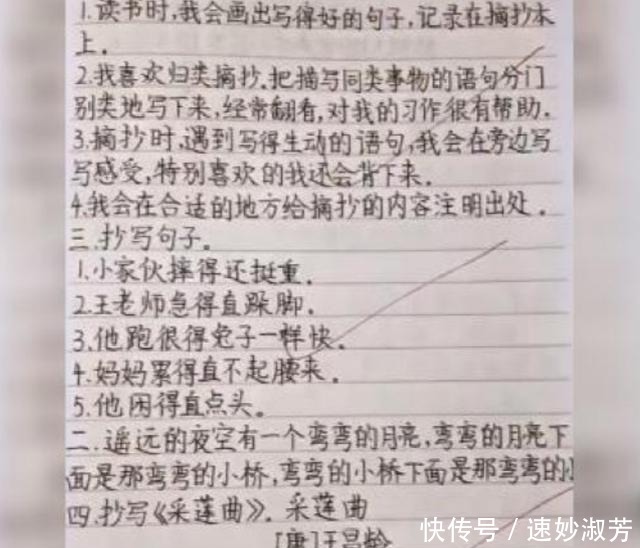 1.读书时,我会画出写得好的句子,记录在摘抄本
上.
2.我喜欢归类摘抄.把描写同类事物的语句分门
别类地写下来,经常翻看,对我的习作很有帮助.
3.摘抄时,遇到写得生动的语句,我会在旁边写
写感受,特别喜欢的我还会背下来.
4.我会在合适的地方给摘抄的内容注明出处.
三.抄写句子.
1.小家伙摔得还挺重.
2.王老师急得直跺脚.
3.他跑很得兔子一样快.
4.妈妈累得直不起腰来.
5.他困得直点头.
二.遥远的夜空有一个弯弯的月亮,弯弯的月亮下
面是那弯弯的小桥,弯弯的小桥下面是那弯弯的
四.抄写《采莲曲》. 采莲曲
[唐]王昌龄
快传号/速妙淑芳